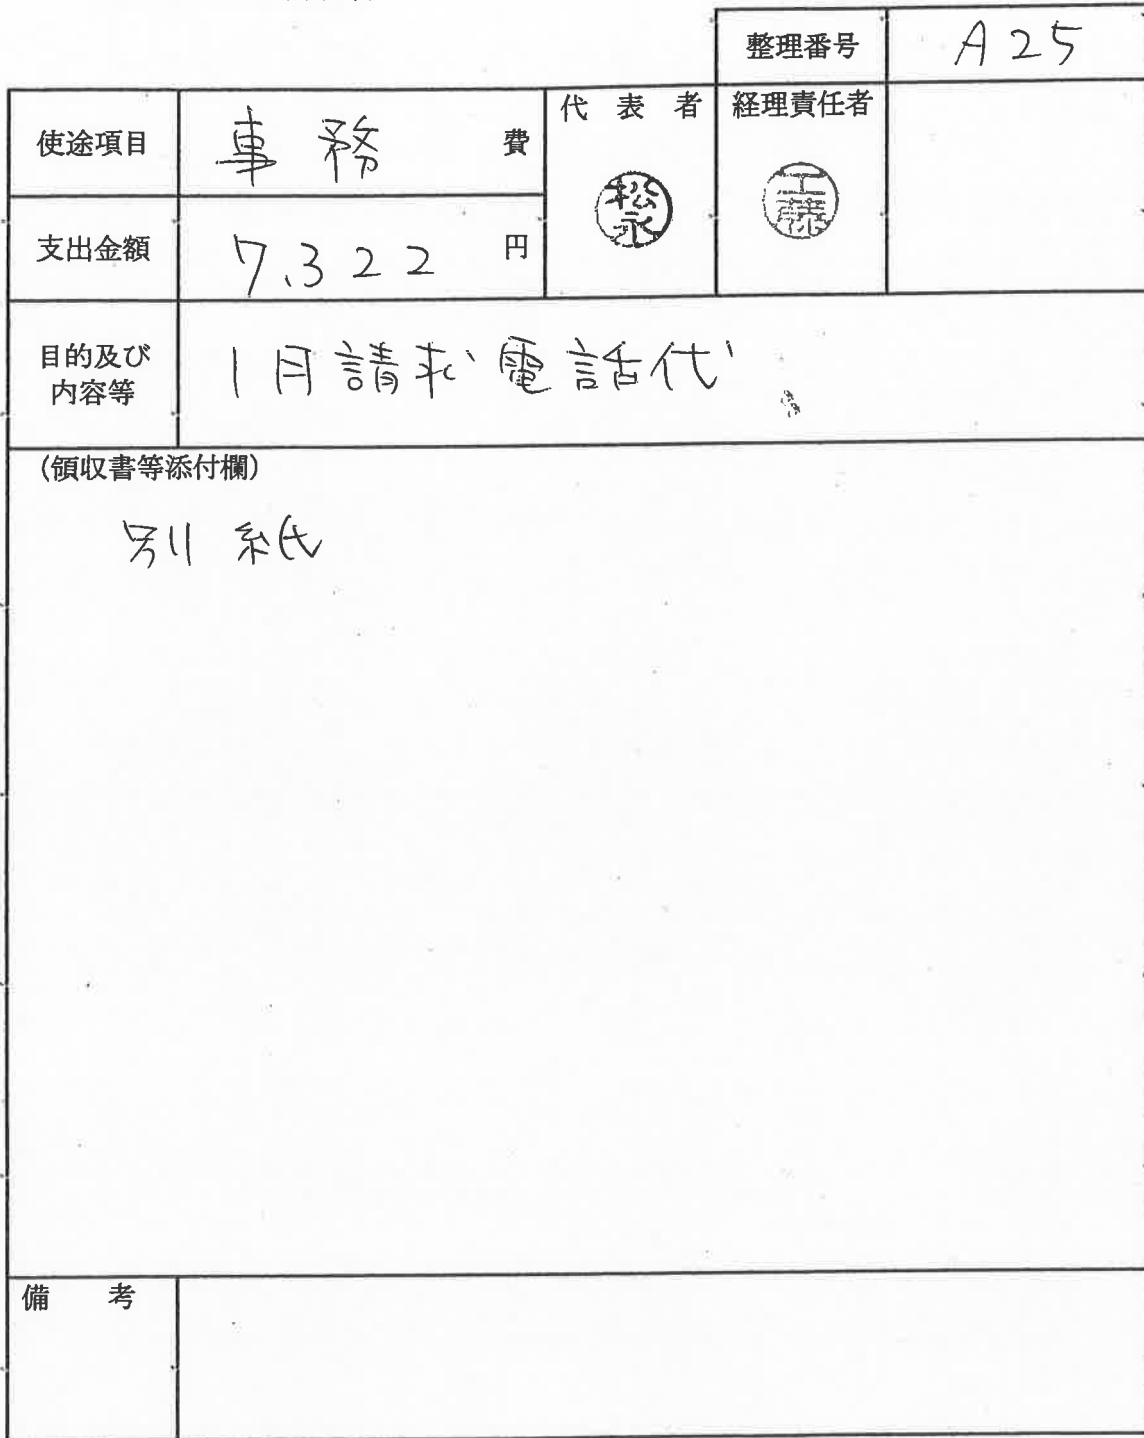 整理番号 A25
使途項目 事務 費
代表者 経理責任者
松永 工藤
支出金額 7,322 円
目的及び内容等 1月請求電話代
(領収書等添付欄)
別紙
備考